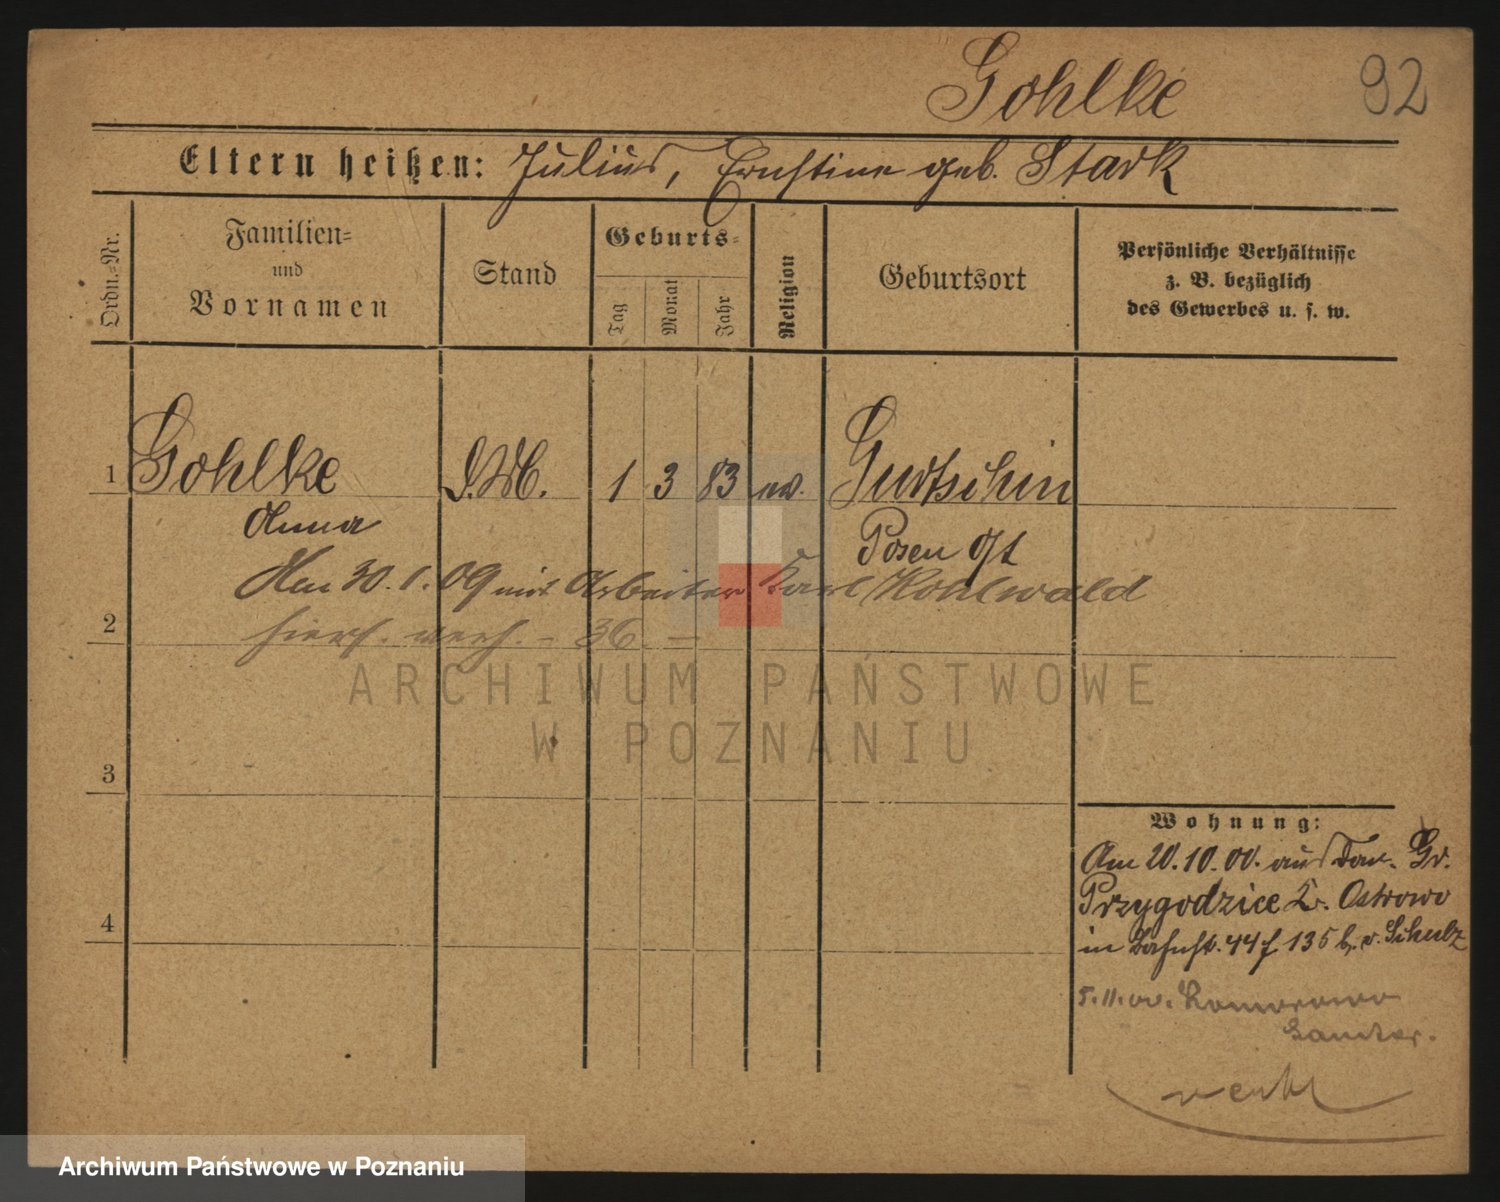 Gohlke 92
Eltern heißen: Julius, Ernstine geb. Stark
Ordn.=Nr.
Familien=
und
Vornamen
Stand
Geburts=
Tag
Monat
Jahr
Religion
Geburtsort
Persönliche Verhältnisse
z. B. bezüglich
des Gewerbes u. s. w.
1 Gohlke 1 3 83 ev. Gurtschin
Anna
Posen O/t
Am 30.1.09 mit Arbeiter Karl Kohlwald
2 hiers. verh. - 36 -
ARCHIWUM PAŃSTWOWE
W POZNANIU
3
4
Wohnung:
Am 20.10.00. aus Dom. Gr.
Przygodzice Kr. Ostrowo
in Bahnst. 44 f 135 b. v. Schulz
5.11.00. Komorowo
Samter.
verh
Archiwum Państwowe w Poznaniu